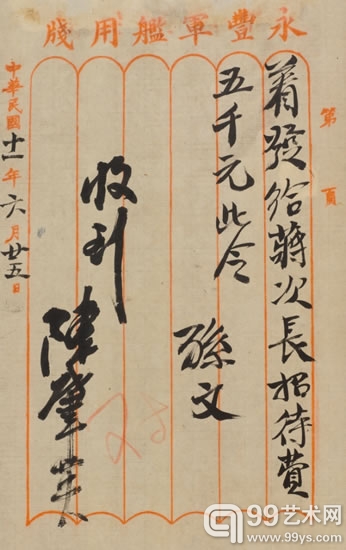 永豐軍艦用牋
第 頁
着發給蔣次長招待費
五千元此令
孫文
收到
陳肇英
中華民國十一年六月廿五日
99艺术网
www.99ys.com